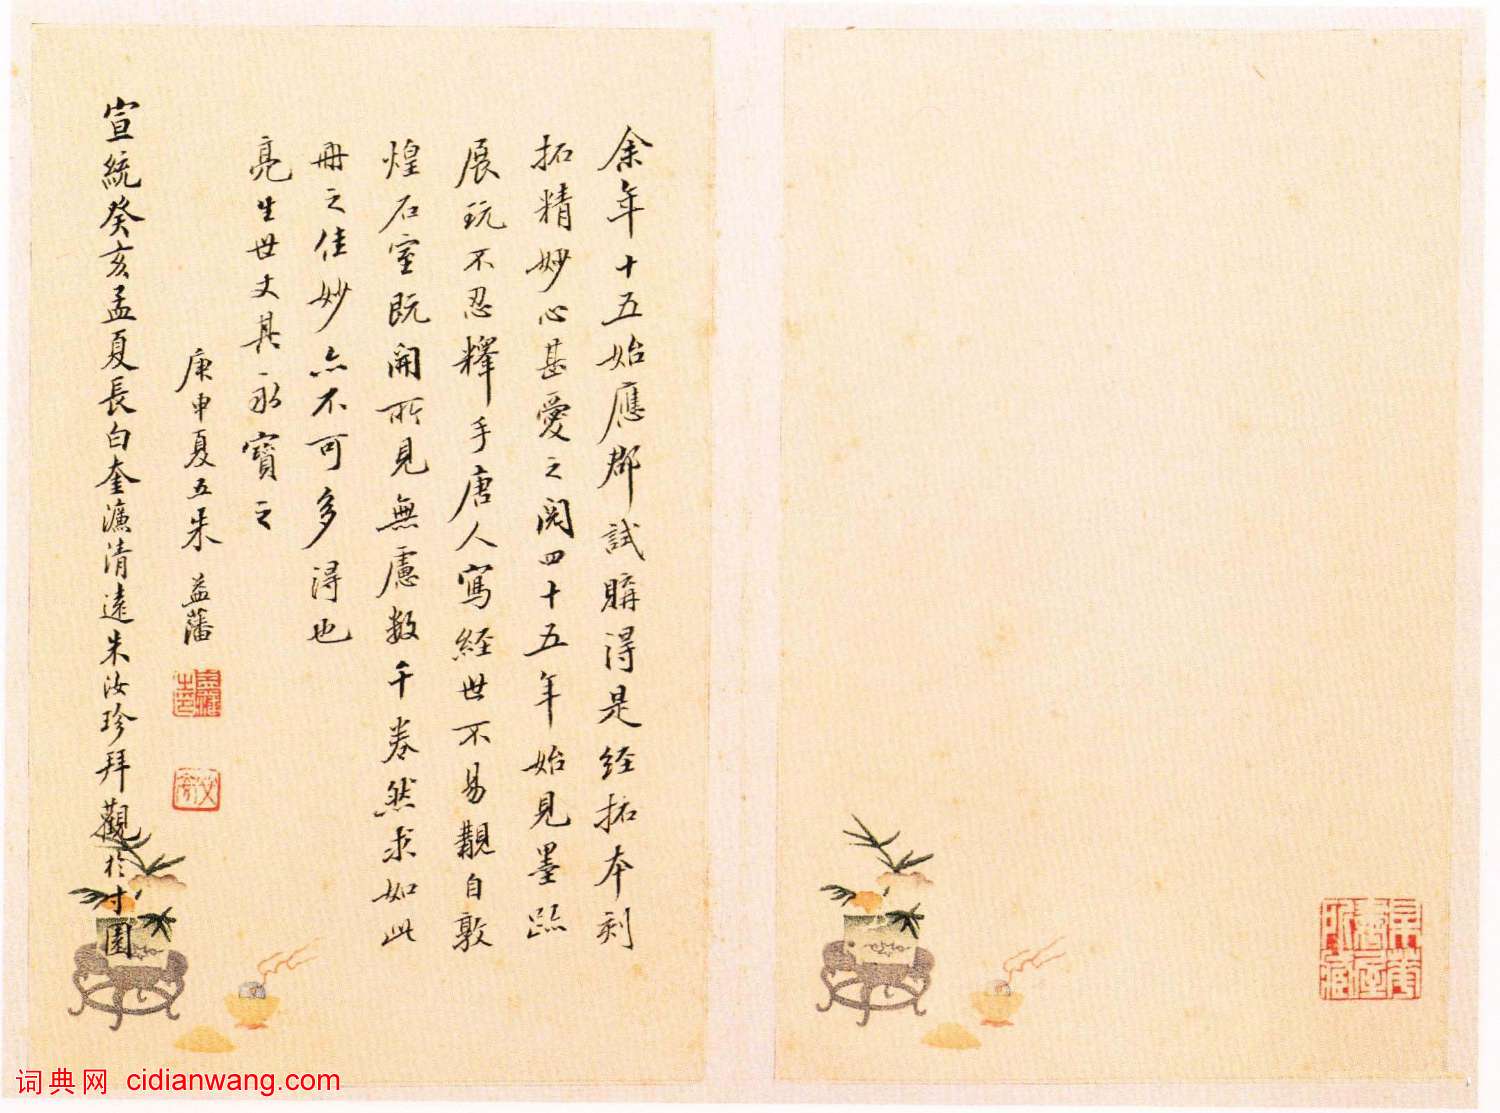 余年十五始應郡試購得是经拓本刻
拓精妙心甚愛之閱四十五年始見墨跡
展玩不忍釋手唐人寫経世不易覯自敦
煌石室既開所見無慮數千卷然求如此
冊之佳妙亦不可多得也
亮生世丈其永寶之
庚申夏五朱益藩
宣統癸亥孟夏長白奎濂清遠朱汝珍拜觀於寸園
词典网 cidianwang.com